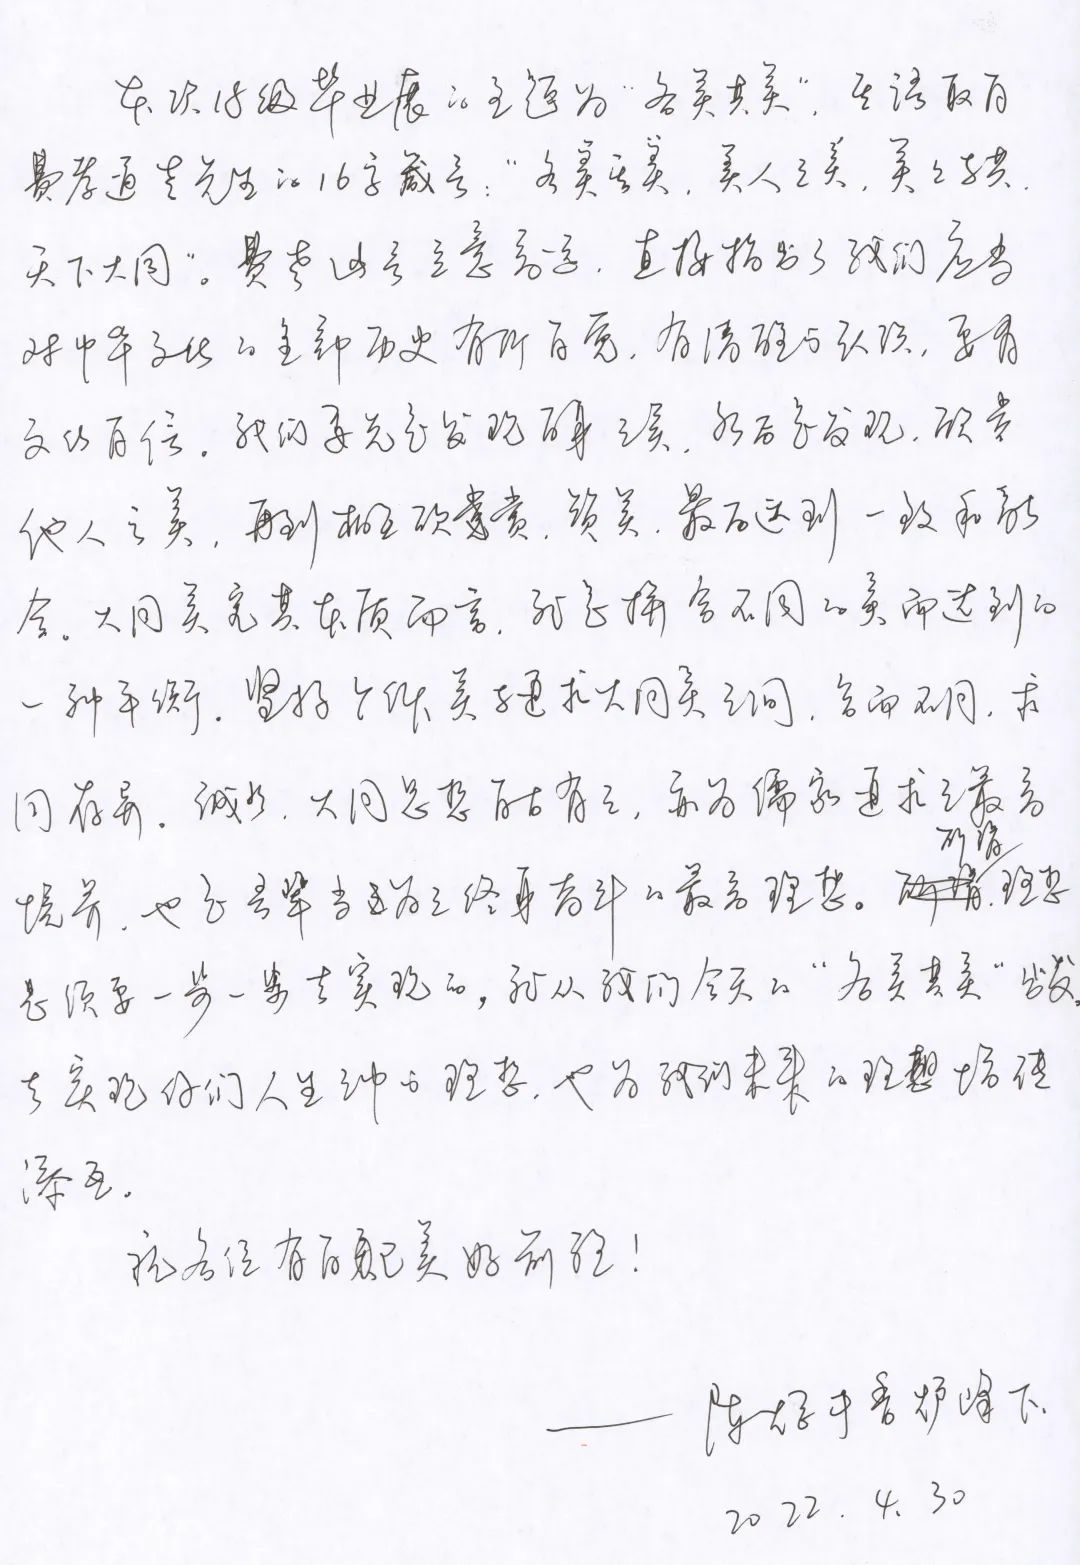 本次18级毕业展的主题为“各美共美”，其语取自
费孝通老先生的16字箴言：“各美其美，美人之美，美美与共，
天下大同”。费老此言立意高字，直接指出了我们应当
对中华文化的全部历史有所自觉，有清醒的认识，要有
文化自信。我们要先是发现自身之美，然后是发现、欣赏
他人之美，再到相互欣赏、赞美，最后达到一致和融
合。大同美究其本质而言，就是拼合不同的美而达到的
一种平衡。坚持个体美与追求大同美之间，合而不同，求
同存异。诚然，大同思想自古有之，亦为儒家追求之最高
境界，也是吾辈当为之终身奋斗的最高理想。所谓理想
是须要一步一步去实现的，就从我们今天的“各美共美”出发，
去实现你们人生中的理想，也为我们未来的理想增砖
添瓦。
祝各位有自己美好前程！
——陈 于香炉峰下.
2022.4.30